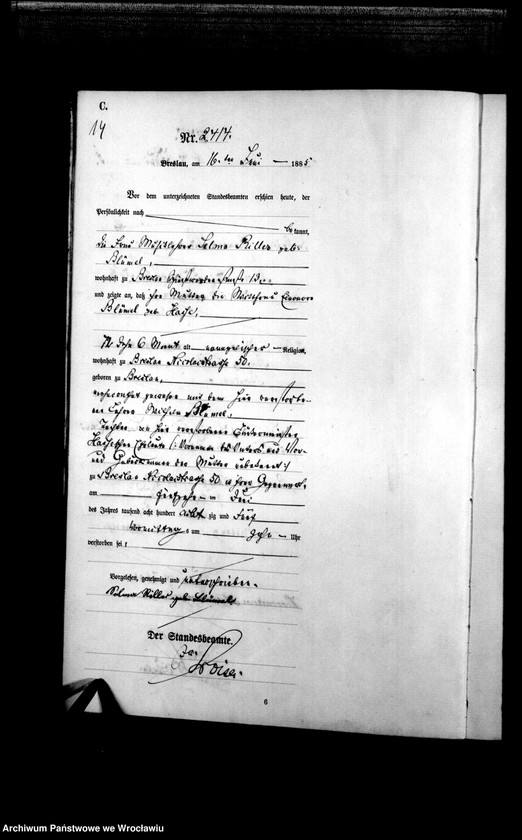 C.
14
Nr. 2717.
Breslau, am 16. ten Juni 1885
Vor dem unterzeichneten Standesbeamten erschien heute, der
Persönlichkeit nach
bekannt,
die Frau Selma Riller geb.
Blümel,
wohnhaft zu Breslau
und zeigte an, daß ihre Mutter, die Eleonore
Blümel geb.
6 Monat alt evangelischer Religion,
wohnhaft zu Breslau Nicolaistraße 50.
geboren zu Breslau,
verheirathet gewesen mit dem hier verstorbe-
nen Wilhelm Blümel,
Tochter des hier verstorbenen
Eheleute (: Vornamen des Vaters und Vor-
und Geburtsnamen der Mutter unbekannt :)
zu Breslau Nicolaistraße 50 in ihrer Gegenwart,
am Juni
des Jahres tausend acht hundert achtzig und fünf
Vormittags um zehn Uhr
verstorben sei,
Vorgelesen, genehmigt und unterschrieben.
Selma Riller geb. Blümel
Der Standesbeamte.
6
Archiwum Państwowe we Wrocławiu